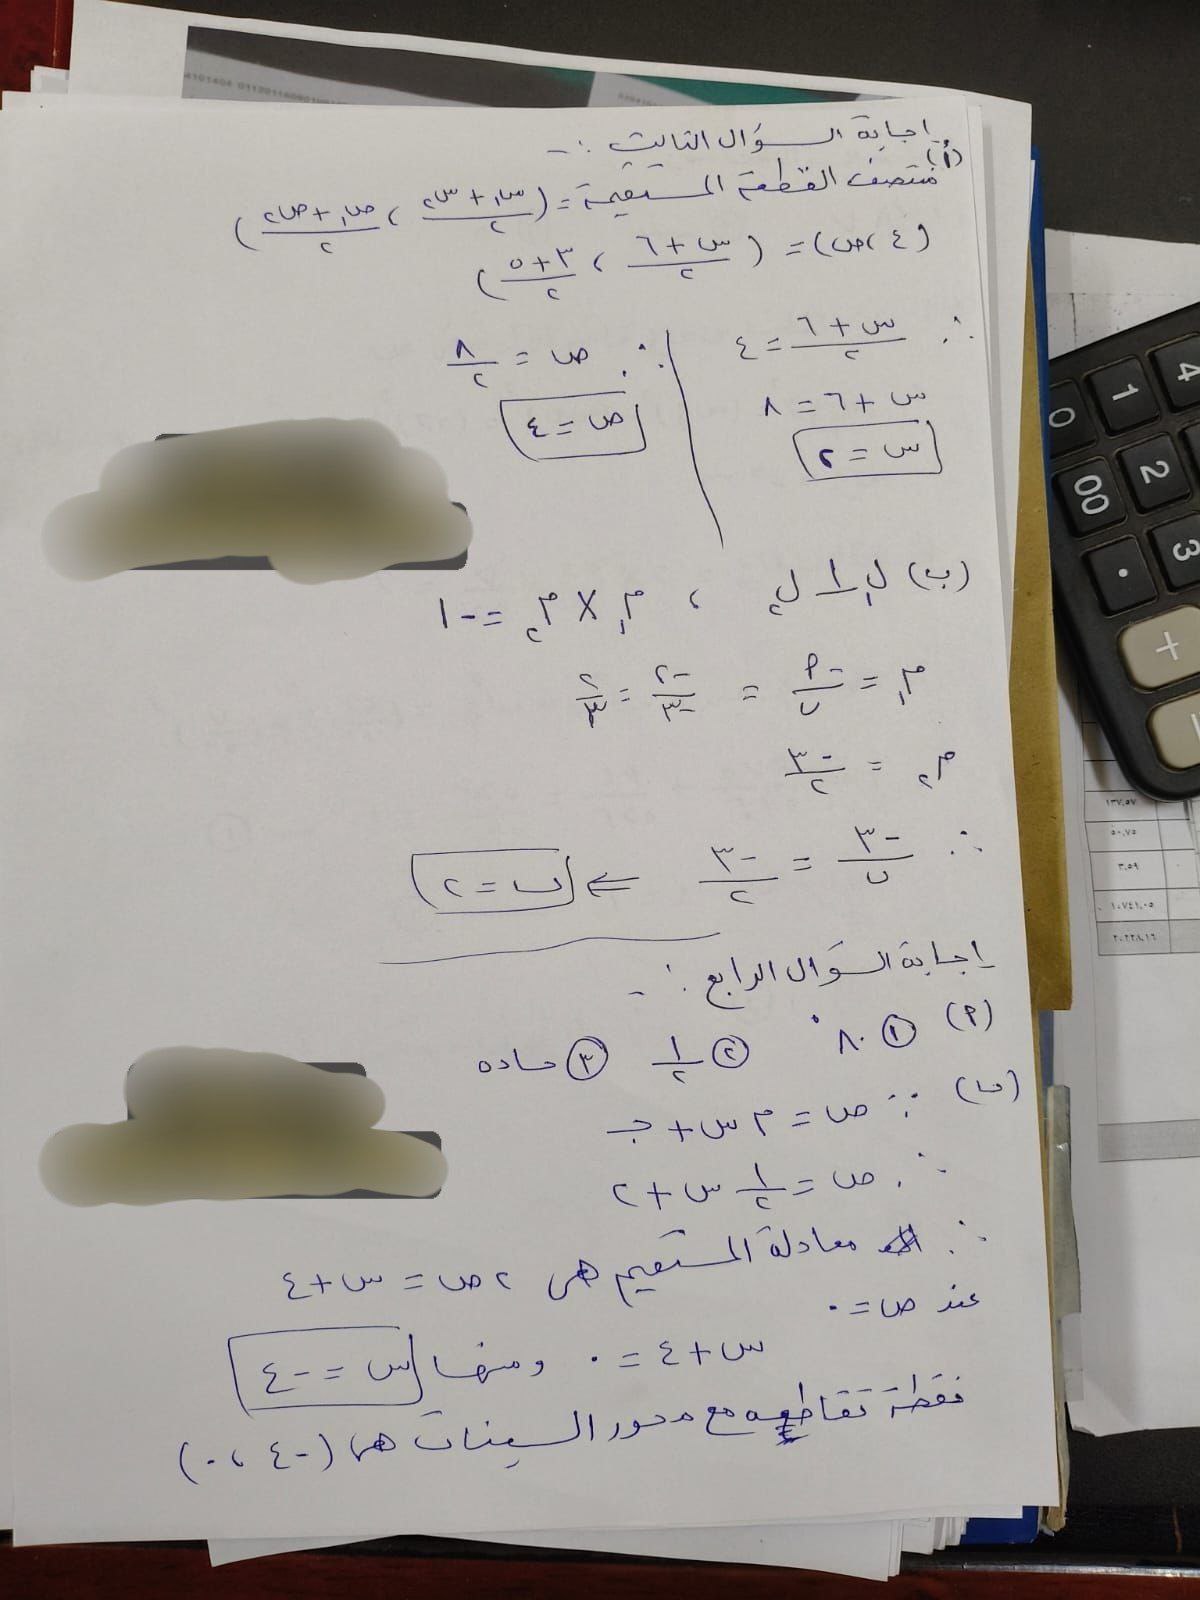 إجابة السؤال الثالث :-
(أ) منتصف القطعة المستقيمة = (س١ + س٢ / ٢ ، ص١ + ص٢ / ٢)
(٤ ، ص) = (س + ٦ / ٢ ، ٣ + ٥ / ٢)
∴ س + ٦ / ٢ = ٤
س + ٦ = ٨
س = ٢
∴ ص = ٨ / ٢
ص = ٤
(ب) ل١ ⊥ ل٢ ، م١ × م٢ = -١
م١ = -٢ / -٣ = ٢ / ٣
م٢ = -٣ / ٢
∴ -٣ / ب = -٣ / ٢ ⇐ ب = ٢
إجابة السؤال الرابع :-
(أ) ① ٨٠° ② ١ / ٢ ③ حاده
(ب) ∵ ص = م س + جـ
∴ ص = ١ / ٢ س + ٢
∴ معادلة المستقيم هى ٢ ص = س + ٤
عند ص = ٠
س + ٤ = ٠ ومنها س = -٤
نقطة تقاطعه مع محور السينات هى (-٤ ، ٠)
4
1
0
2
00
3
.
+
١٣٧,٥٧
٥٠,٧٥
٣,٥٩
١٠٧٤١,٠٥